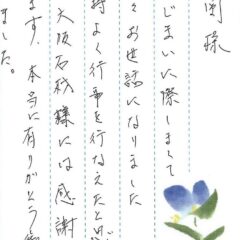 様
じまいに際しまして
々お世話になりました
よく行事を行なえたと思
大阪石材様には感謝
ます。本当に有りがとう
ました。